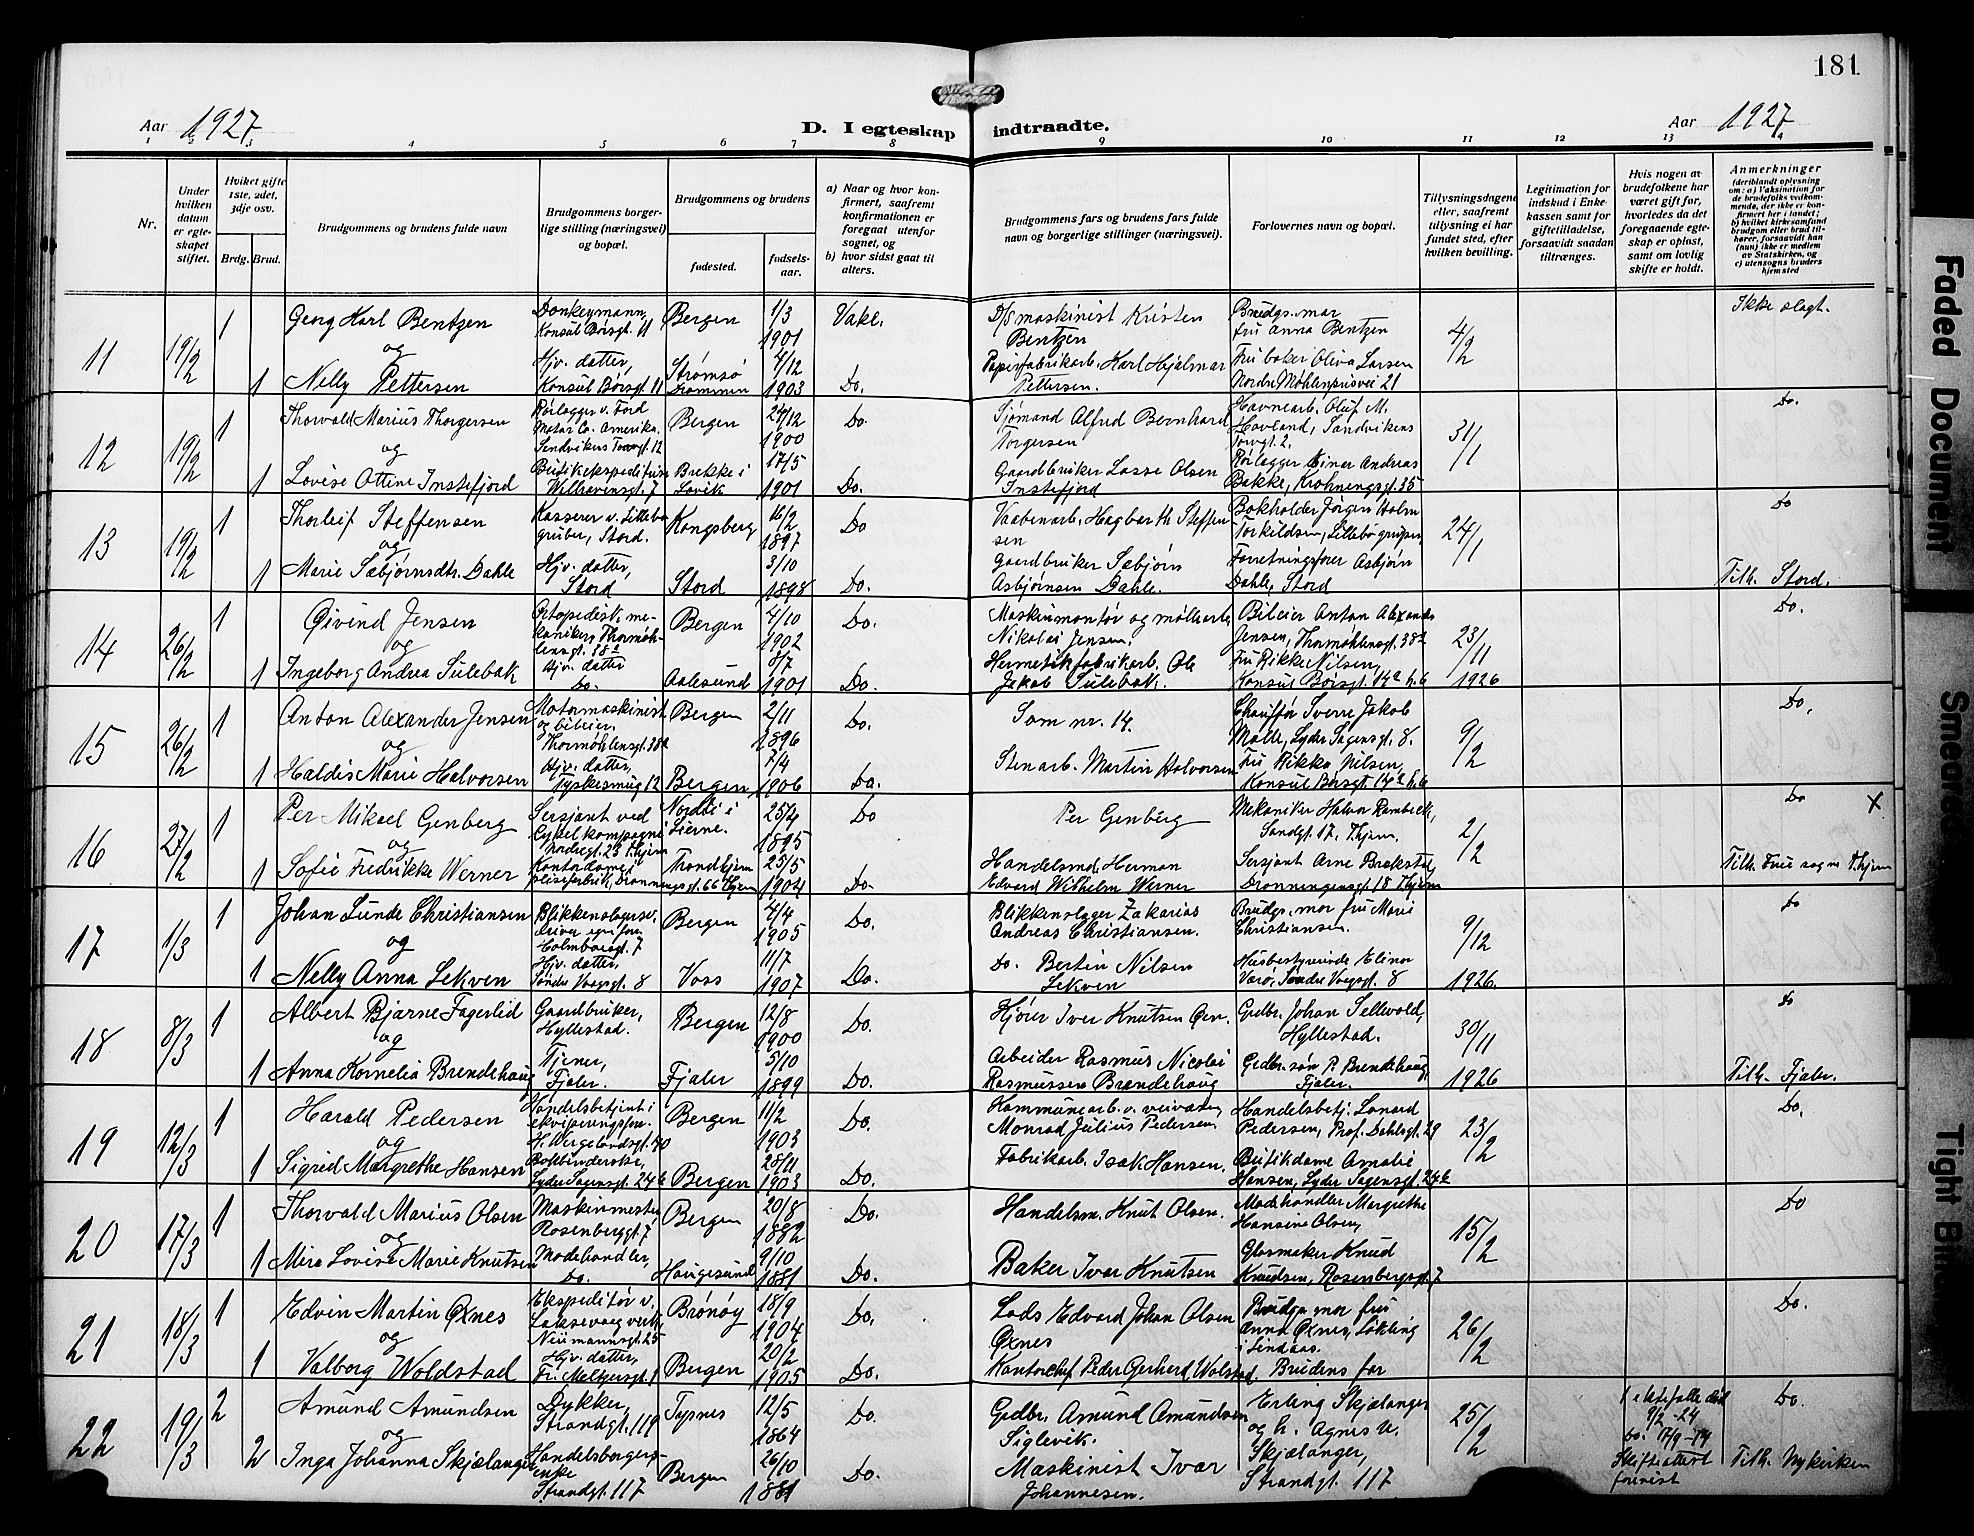 181
Aar 1927 D. I egteskap indtraadte. Aar 1927
1 2 3 4 5 6 7 8 9 10 11 12 13 14
Nr.
Under hvilken datum er egteskapet stiftet.
Hvilket gifte 1ste, 2det, 3dje osv.
Brdg. Brud.
Brudgommens og brudens fulde navn
Brudgommens borgerlige stilling (næringsvei) og bopæl.
Brudgommens og brudens
fødested.
fødselsaar.
a) Naar og hvor konfirmert, saafremt konfirmationen er foregaat utenfor sognet, og
b) hvor sidst gaat til alters.
Brudgommens fars og brudens fars fulde navn og borgerlige stillinger (næringsvei).
Forlovernes navn og bopæl.
Tillysningsdagene eller, saafremt tillysning ei har fundet sted, efter hvilken bevilling.
Legitimation for indskud i Enkekassen samt for giftetilladelse, forsaavidt saadan tiltrænges.
Hvis nogen av brudefolkene har været gift før, hvorledes da det foregaaende egteskap er opløst, samt om lovlig skifte er holdt.
Anmerkninger
(deriblandt oplysning om: a) Vaksination for de brudefolks vedkommende, der ikke er konfirmert her i landet; b) hvilket kirkesamfund brudgom eller brud tilhører, forsaavidt han (hun) ikke er medlem av Statskirken, og c) utensogns bruders hjemsted
11 19/2 1 Georg Karl Bentzen Donkeymann, Konsul Børsgt. 11 Bergen 1/3 1901 Vakc. D/S maskinist Kristen Bentzen Brudgs. mor fru Anna Bentzen 4/2 Ikke slagt.
og
1 Nelly Pettersen Hjv. datter, Konsul Børsgt. 11 Strømsø Drammen 4/12 1903 Do. Papirfabrikarb. Karl Hjalmar Pettersen. Fru baker Oliva Larsen Nordre Møhlenprisvei 21
12 19/2 1 Thorvald Marius Thorgersen Rørlægger v. Ford Motor Co. Amerika, Sandvikens Torvgt. 12 Bergen 24/12 1900 Do. Sjømand Alfred Bernhard Torgersen Havnearb. Oluf M. Hovland, Sandvikens Torvgt. 2, 31/1 Do.
og
1 Lovise Ottine Instefjord Butikekspeditrise Welhavensgt. 7 Brekke i Lavik 17/5 1901 Do. Gaardbruker Lasse Olsen Instefjord Rørlægger Einar Andreas Bakke, Krohningsgt. 35
13 19/2 1 Thorleif Steffensen Kasserer v. Lillebø gruber, Stord. Kongsberg 16/2 1897 Do Vaabenarb. Hagbarth Steffensen Bokholder Jørgen Holm Torkildsen, Lillebø gruber, 24/1 Do
og
1 Marie Sæbjørnsdtr. Dahle Hjv. datter, Stord Stord 3/10 1898 Do. Gaardbruker Sæbjørn Asbjørnsen Dahle. Forretningsfører Asbjørn Dahle, Stord Tilh. Stord.
14 26/2 1 Øivind Jensen Ortopedisk mekaniker, Thormøhlensgt. 38a Bergen 4/10 1902 Do. Maskinmontør og møllearb. Nikolai Jensen. Bileier Anton Alexander Jensen, Thormøhlensgt. 38a 23/11 Do.
og
1 Ingeborg Andrea Sulebak Hjv. datter Do. Aalesund 8/7 1901 Do. Hermetikfabrikarb. Ole Jakob Sulebak. Fru Rikke Nilsen, Konsul Børsgt. 14a h.6 1926
15 26/2 1 Anton Alexander Jensen Motormaskinist og bileier, Thormøhlensgt. 38a Bergen 2/11 1896 Do. Som nr. 14. Chauffør Sverre Jakob Malle, Lyder Sagensgt. 8. 9/2 Do.
og
1 Haldis Marie Halvorsen Hjv. datter, Tyskesmug 12 Bergen 7/4 1906 Do. Stenarb. Martin Halvorsen Fru Rikka Nilsen, Konsul Børsgt. 14a h.6
16 27/2 1 Per Mikael Genberg Sersjant ved Cykelkompagni Nordregt. 23 Thjem Nordli i Lierne. 25/4 1895 Do Per Genberg Mekaniker Halvor Rambeck, Sandgt. 17, Thjem. 2/2 Do X
og
1 Sofie Fredrikke Werner Kontordame, Dronningensgt. 66 Thjem Trondhjem 25/5 1904 Do. Handelsmd. Herman Edvard Wilhelm Werner Sersjant Arne Brækstad, Dronningensgt. 18 Thjem Tilh. Frue sogn Thjem
17 1/3 1 Johan Lunde Christiansen Blikkenslagersv. Holmboesgt. 7 Bergen 4/4 1905 Do. Blikkenslager Zakarias Andreas Christiansen. Brudgs. mor fru Marie Christiansen. 9/12 Do
og
1 Nelly Anna Lekven Hjv. datter, Søndre Voegsgt. 8 Voss 11/7 1907 Do. Do. Bertin Nilsen Lekven Husbestyrerinde Elinor Varø, Søndre Voegsgt. 8 1926.
18 8/3 1 Albert Bjarne Fagerlid Gaardbruker, Hyllestad. Bergen 12/8 1900 Do. Kjører Iver Knutsen Øen. Grdbr. Johan Sellevold, Hyllestad. 30/11 Do
og
1 Anna Kornelia Brendehaug Tjener, Fjaler. Fjaler 5/10 1899 Do. Arbeider Rasmus Nicolai Rasmussen Brændehaug Grdbr. søn P. Brendehaug, Fjaler. 1926 Tilh. Fjaler.
19 12/3 1 Harald Pedersen Handelsbetjent i ekviperingsfor. H. Wergelandsgt. 40 Bergen 11/2 1903 Do. Kommunearb. v. veivæsen Monrad Julius Pedersen. Handelsbetj. Lonard Pedersen, Prof. Dahlsgt. 29 23/2 Do.
og
1 Sigrid Margrethe Hansen Bokbinderske, Lyder Sagensgt. 24b Bergen 28/11 1903 Do. Fabrikarb. Isak Hansen. Butikdame Amalie Hansen, Lyder Sagensgt. 24b
20 17/3 1 Thorvald Marius Olsen Maskinmester Rosenberggt. 7 Bergen 20/8 1882 Do. Handelsm. Knut Olsen. Madehandler Margrethe Hansine Olsen, 15/2 Do
og
1 Mira Lovise Marie Knutsen Modehandler, Do. Haugesund 9/10 1881 Do. Baker Ivar Knutsen Glasmaker Knud Knudsen, Rosenbergsgt. 7
21 18/3 1 Edvin Martin Øxnes Ekspeditør v. Laksevaag verk, Neumannsgt. 25 Brønøy 18/9 1904 Do. Lods Edvard Johan Olsen Øxnes Brudgs. mor fru Anna Øxnes, i Lindaas. 26/2 Do.
og
1 Valborg Woldstad Hjv. datter, Fr. Meltzersgt. 1 Bergen 20/2 1905 Do. Kontorchef Peder Gerhard Wolstad. Brudens far
22 19/3 2 Amund Amundsen Dykker, Strandgt. 119 Tysnes 12/5 1864 Do. Grdbr. Amund Amundsen Siglevik. Erling Skjælanger og h. Agnes U. Skjælanger, Strandgt. 117 25/2 1 ektefælle død 9/2 -24 Do.
og
2 Inga Johanna Skjælanger Handelsborgers enke Strandgt. 117 Bergen 26/10 1881 Do. Maskinist Ivar Johannesen. Do. 17/9 -14 Skifteattest forevist Tilh. Nykirken
Faded Document
Smeared
Tight Bind